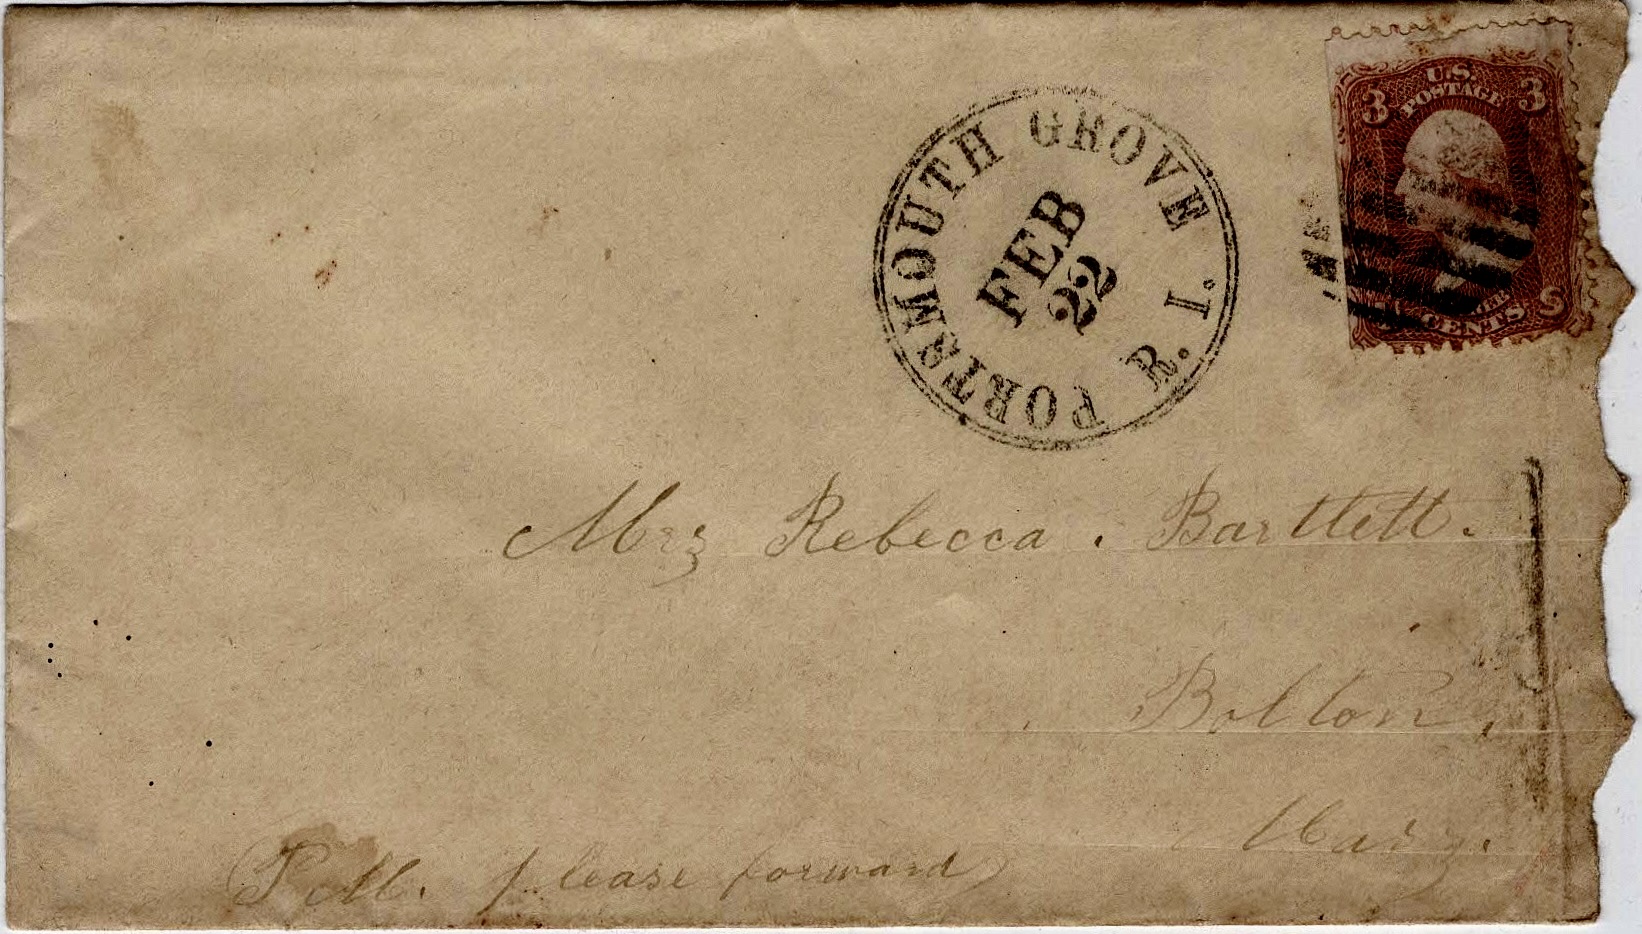 U.S.
POSTAGE
3 3
CENTS
PORTSMOUTH GROVE R. I.
FEB
22
Mrs Rebecca. Bartlett.
Bolton.
Mass.
P M. please forward